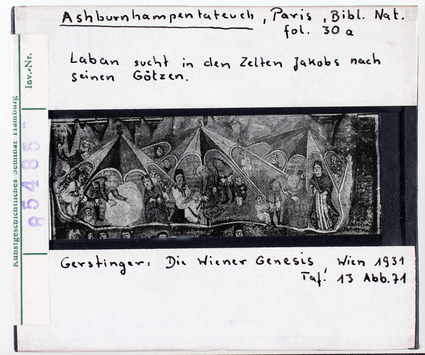 Ashburnhampentateuch, Paris, Bibl. Nat.
fol. 30a
Laban sucht in den Zelten Jakobs nach
seinen Götzen.
Gerstinger: Die Wiener Genesis, Wien 1931
Taf. 13 Abb. 71
Kunstgeschichtliches Seminar Hamburg
Inv.-Nr.
85485